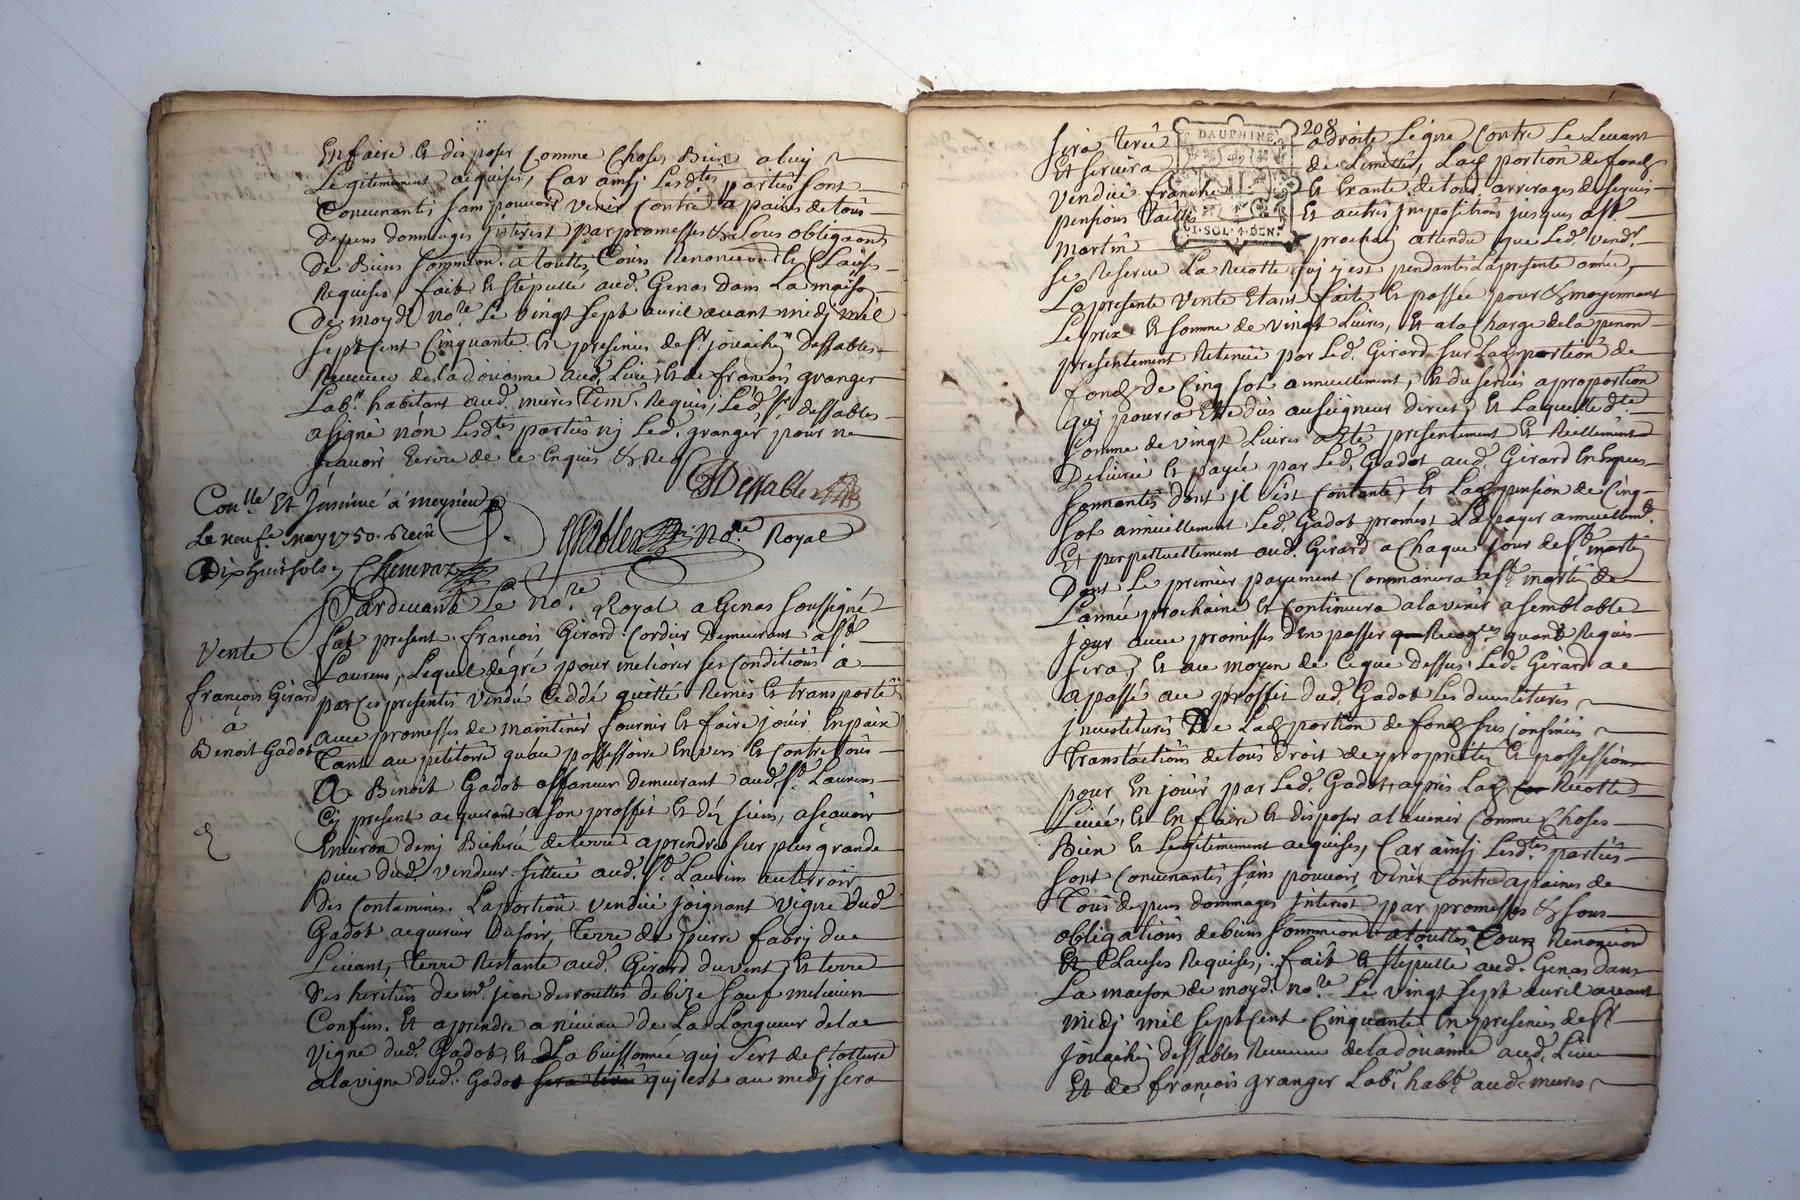 En faire et disposer comme choses Bien a luy
Legitimement acquises, Car ainsi Lesdtes parties sont
Convenantes sans pouvoir venir Contre a paines de tous
depens dommages interest par promesses & sous obligaõns
de Biens sommiõn a touttes Cours Renonceond et Clauses
Requises, fait et stepullé aud. Genas dans La maison
de moyd. nore. Le vingt sept avril avant midj mil
sept Cent Cinquante En presences de sr. joüachin dessables
Receveur de la doüanne aud. Lieu, et de francois granger
Labr. habitant aud. mures tem. Requis, Led. sr. dessables
a signé non Lesdtes parties nj Led. granger pour ne
scavoir Ecrire de ce Enquis & Req
Dessables
Conllé Et Jnsinué á meysieu
Le neuf. may 1750. Recu
Dixhuit sols, Cheneraz
Dessables Nore. Royal
Pardevant Le nore. Royal a Genas soussigné
fut present. francois Girard. Cordier Demeurant a st.
Laurens, Lequel dégré pour meliorer ses Conditions á
par Ces presentes vendu Ceddé quitté Remis et transporté
avec promesses de maintenir fournir Et faire joüir En paix
Tant au petitoire qu'au possessoire Envers Et Contre tous
Vente
francois Girard
á
Benoit Gadot
A Benoit Gadot affanneur Demeurant aud. st. Laurens
Cy present acquerant a son proffit Et déz siens, ascavoir
Environ demj Bicherée de terre a prendre sur plus grande
piece dud. vendeur. sittuée aud. st. Laurens au terroir
des Contamines. La portion vendüe joignant vigne dud.
Gadot acquereur du soir, Terre de pierre fabrj du
Levant, Terre Restante aud. Girard du vent, Et terre
des heritiers de mr. jean desrouttes de bize sauf meilleurs
Confins. Et a prendre a niveau de La Longueur de la
vigne dud. Gadot, Et La buissonnée quj sert de Clotture
a la vigne dud. Gadot sera tirée quj est au midj sera
208
DAUPHINE
1·SOL·4·DEN·
sera tirée a droite Ligne Contre Le Levant
Et servira de Limittes, Lad. portion de fondz
vendüe franche Et Exante de tous arrerages de servis
pensions tailles Et autres jmpositions jusques a st.
martin prochain attendu que Led. vendr.
se Reserve La Recotte quj y est pendante La presente année,
La presente vente Etant faite Et passée pour & moyennant
Le prix Et somme de vingt Livres, Et a la Charge de la pension
presentement Retenüe par Led. Girard sur Lad. portion de
fondz de Cinq sols annuellement, Et du servis a proportion
quj pourra Etre dús au seigneur direct, Et Laquelle dte.
somme de vingt Livres a Eté presentement Et Reellement
Délivrée Et payée par Led. Gadot aud. Girard En Especes
sonnantes dont jl s'est Contanté, Et Lad. pension de Cinq
sols annuellement Led. Gadot promest La payer annuellemt.
Et perpetuellement aud. Girard a Chaque jour de st. martin
Dont Le premier payement Commencera a st. martin de
L'année prochaine Et Continuera a l'avenir a semblable
jour avec promesses d'En passer Recogces quand Requis
sera, Et au moyen de Ce que Dessus, Led. Girard a
a passé au proffit dud. Gadot Les devestitures
jnvestitures De Lad. portion de fondz sus confinée
Translations de tous droit de proprieté Et possession
pour En joüir par Led. Gadot, aprés Lad. Recotte
Levée, Et En faire Et disposer a l'avenir Comme Choses
Bien Et Legitimement acquises, Car ainsj Lesdtes. parties
sont Convenantes sans pouvoir venir Contre a paines de
Tous depens dommages jnterest par promesses & sous
obligations de biens sommiõn a touttes Cours Renonciõn
Et Clauses Requises, fait Et stepullé aud. Genas dans
La maison de moyd. nore. Le vingt sept avril avant
midj mil sept Cent Cinquante En presences de sr.
joüachin dessables Receveur de la doüanne aud. Lieu
Et de francois granger Labr. habt. aud. mures